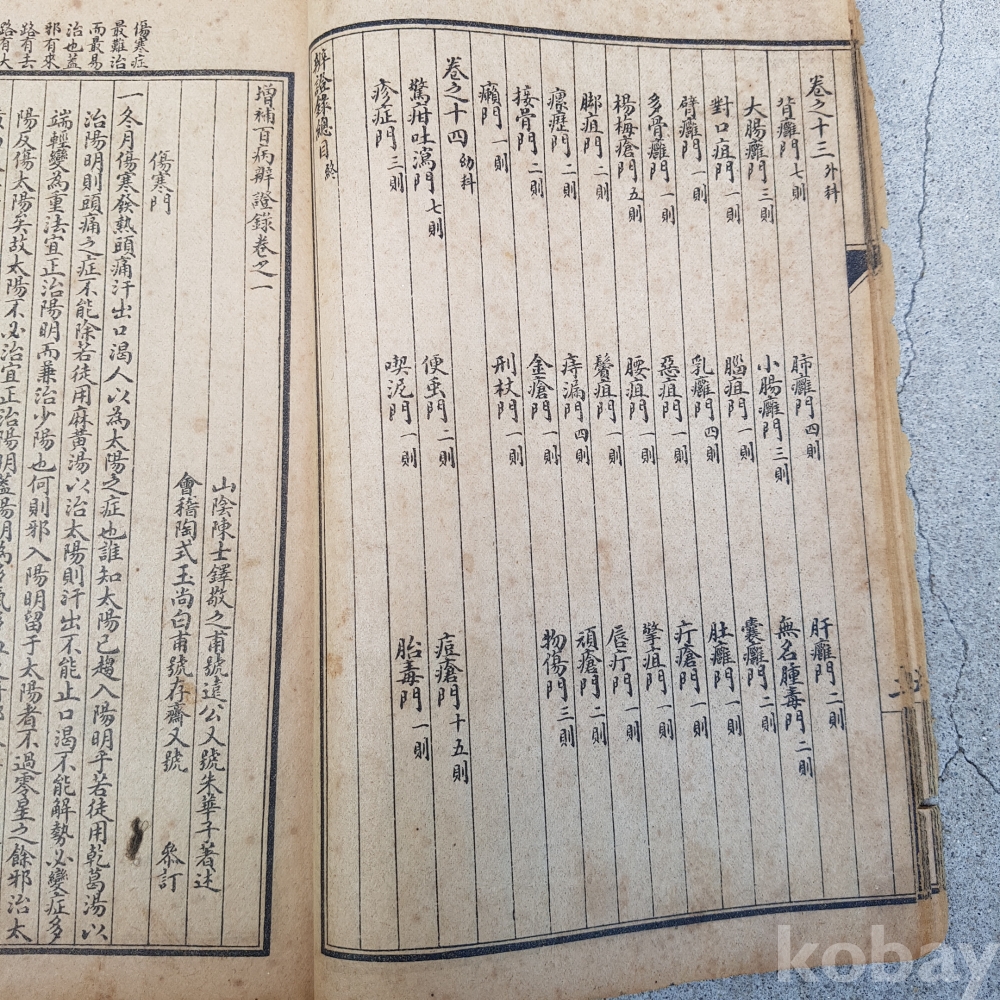 卷之十三 外科
背癰門 七則 肺癰門 四則 肝癰門 二則
大腸癰門 三則 小腸癰門 三則 無名腫毒門 二則
對口疽門 一則 腦疽門 一則 囊癰門 二則
臂癰門 一則 乳癰門 四則 肚癰門 一則
多骨癰門 一則 惡疽門 一則 疔瘡門 一則
楊梅瘡門 五則 腰疽門 一則 擎疽門 一則
脚疽門 二則 鬢疽門 一則 唇疔門 一則
瘰癧門 二則 痔漏門 四則 頑瘡門 二則
接骨門 二則 金瘡門 一則 物傷門 三則
癩門 一則 刑杖門 一則
卷之十四 幼科
驚疳吐瀉門 七則 便虫門 二則 痘瘡門 十五則
疹症門 三則 喫泥門 一則 胎毒門 一則
辨證錄總目 終
傷寒症
最難治
而最易
治也蓋
邪有來
路有去
路有大
增補百病辨證錄卷之一
山陰陳士鐸敬之甫號遠公又號朱華子著述
會稽陶式玉尚白甫號存齋又號 叅訂
傷寒門
一冬月傷寒發熱頭痛汗出口渴人以為太陽之症也誰知太陽已趨入陽明乎若徒用乾葛湯以
治陽明則頭痛之症不能除若徒用麻黃湯以治太陽則汗出不能止口渴不能解勢必變症多
端輕變為重法宜正治陽明而兼治少陽也何則邪入陽明留于太陽者不過零星之餘邪治太
陽反傷太陽矣故太陽不必治宜正治陽明蓋陽明為多氣多血之
kobay